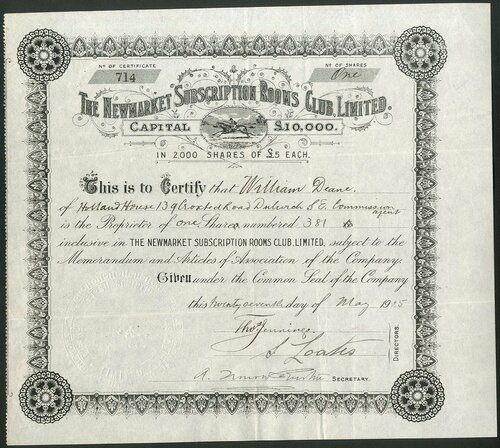 No OF CERTIFICATE
714
No OF SHARES
One
THE NEWMARKET SUBSCRIPTION ROOMS CLUB, LIMITED.
CAPITAL £10,000.
IN 2,000 SHARES OF £5 EACH.
This is to Certify that William Deane
of Holland House 139 Croxted Road Dulwich S.E. Commission agent
is the Proprietor of one Share numbered 381
inclusive in THE NEWMARKET SUBSCRIPTION ROOMS CLUB, LIMITED, subject to the
Memorandum and Articles of Association of the Company.
Given under the Common Seal of the Company
this twenty seventh day of May 1905
Thos Jennings
S Loates
DIRECTORS.
A.
SECRETARY.